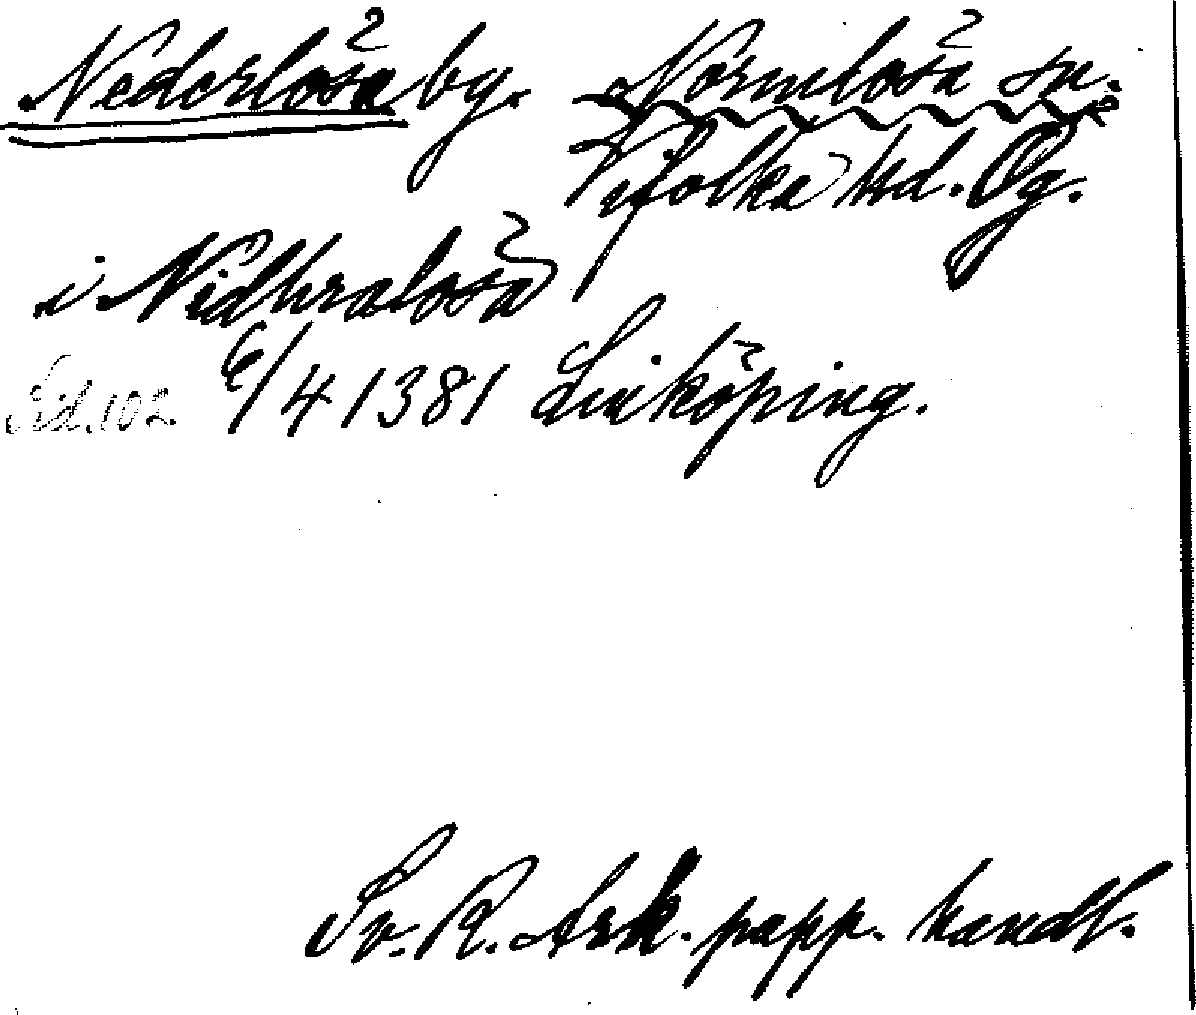 Nederlösa by. Normlösa sn.
Vifolka hd. Ög.
i Nidhralösa
Sid. 102. 6/4 1381 Linköping.
Sv. R. Ark. papp. handl.